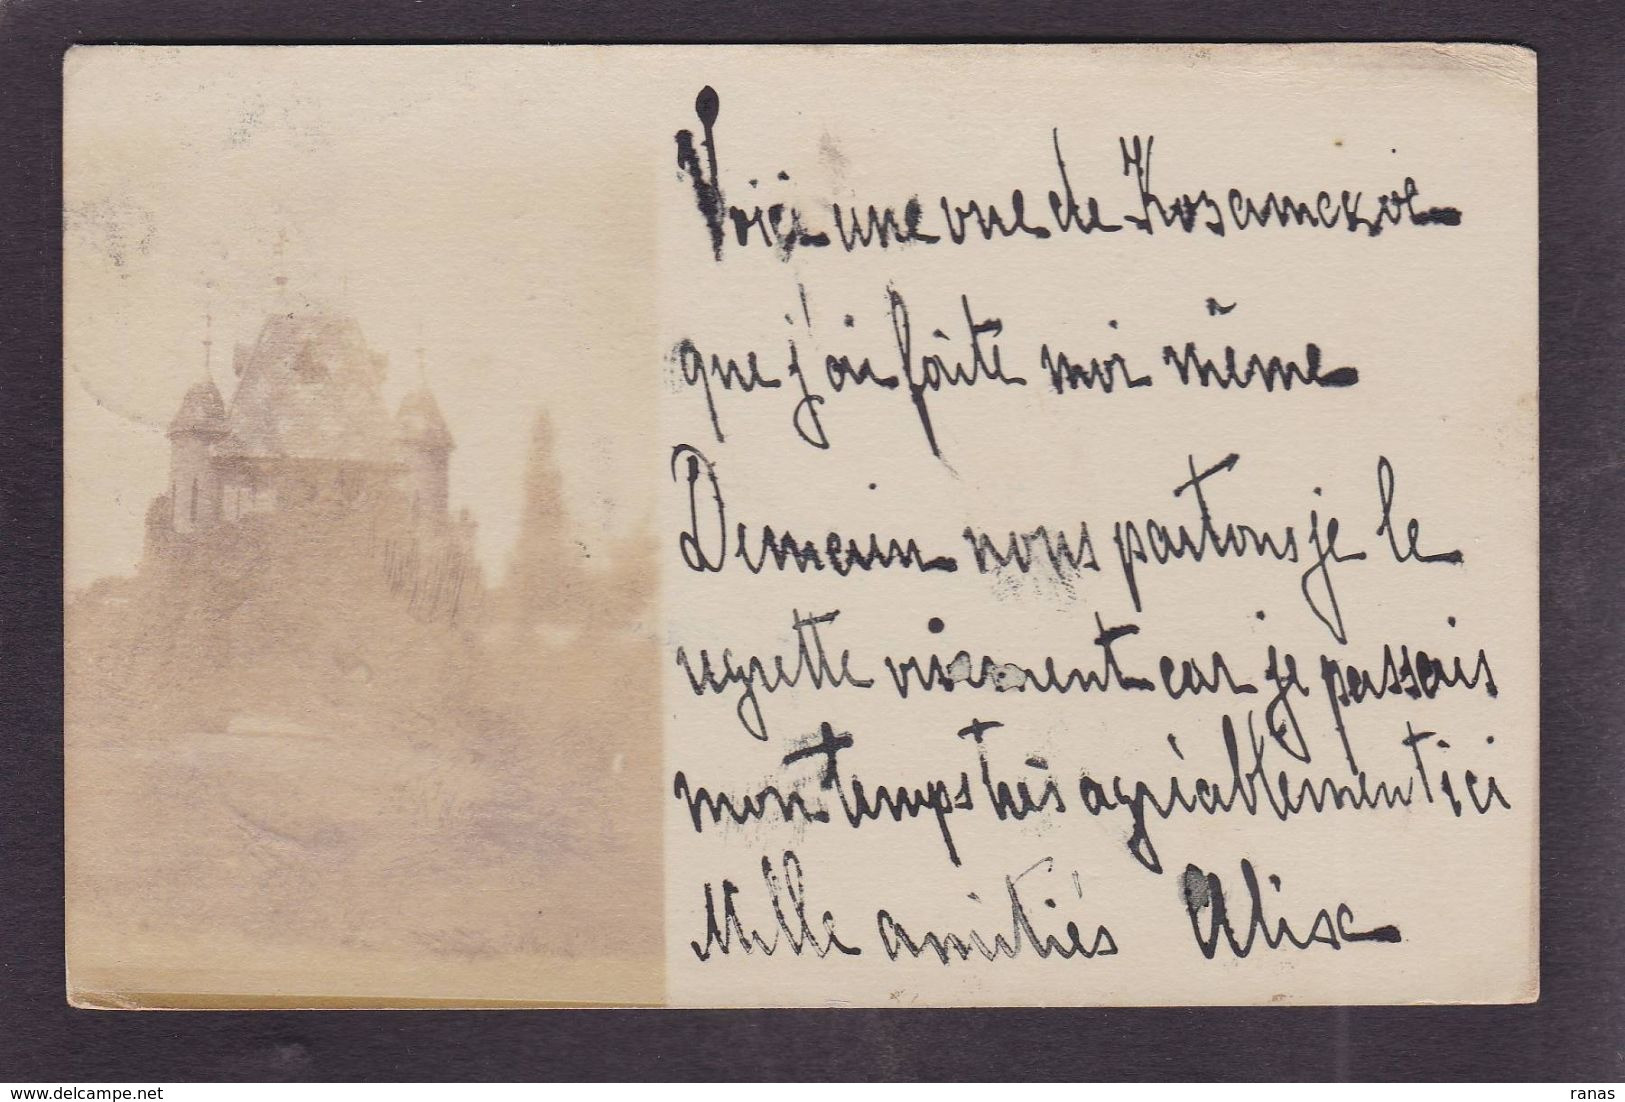 Voici une vue de Козатское
que j'ai faite moi même
Demain nous partons je le
regrette vivement car je passais
mon temps très agréablement ici
Mille amitiés Alix
ranas